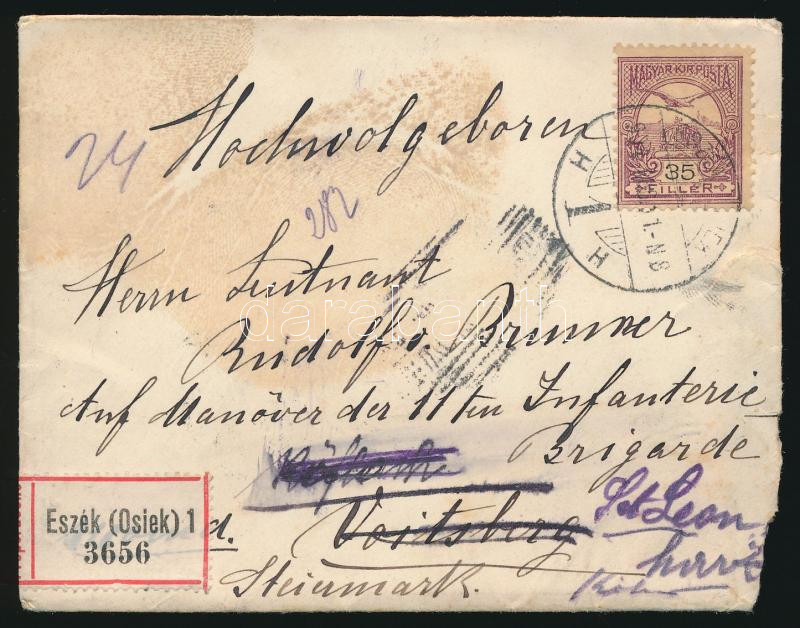 MAGYAR KIR. POSTA
35
FILLÉR
H
H
1-N8
24
Hochwolgeboren
282
Herrn Leutnant
Rudolf v. Brunner
Auf Manöver der 11ten Infanterie
Brigarde
St Leon
Voitsberg
d.
Steiermark.
Eszék (Osiek) 1
3656
darabanth